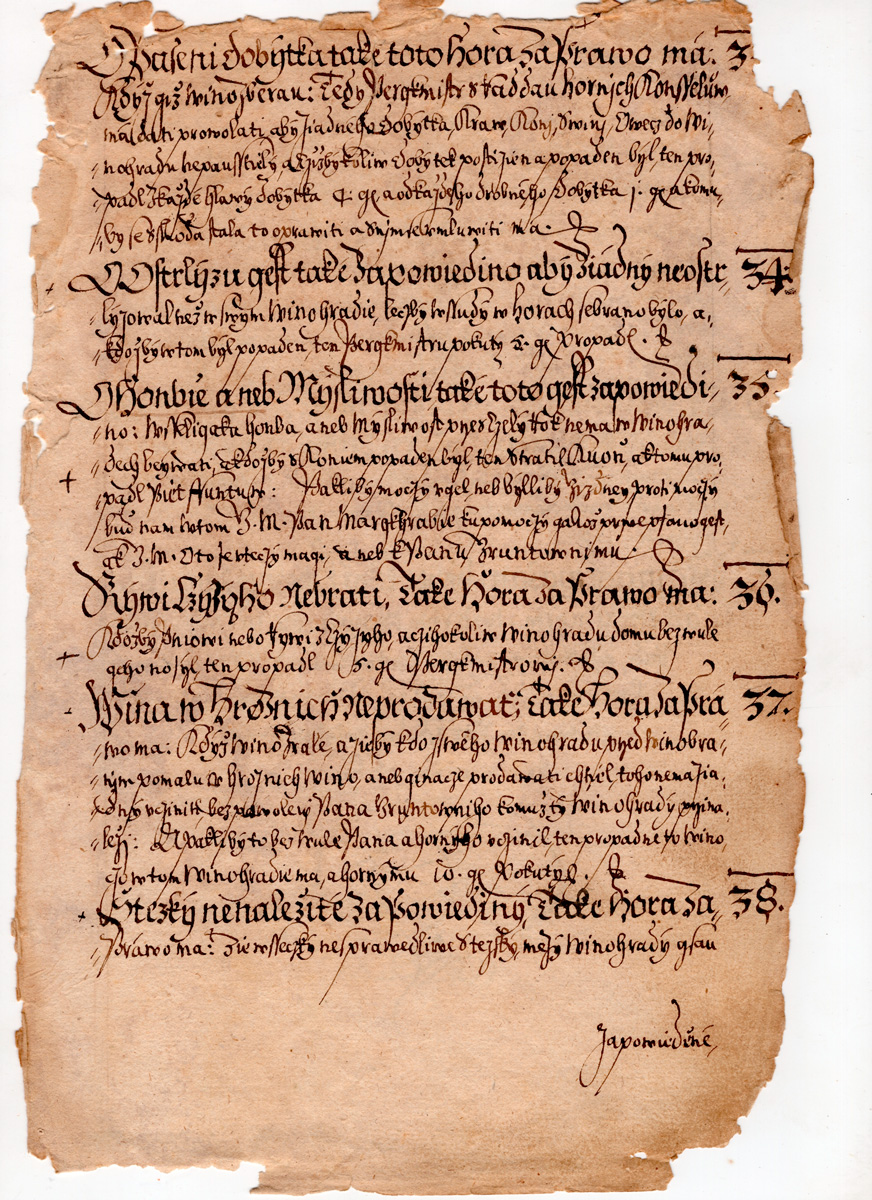 O Paseni dobytka take toto Hora za Prawo má: 3
Když giž wino zerau: Tedy Pergkmistr s Raddau Hornich Konsseluw
má dati prowolati, aby žiadneho Dobytka, Kraw, Konj, Swinj, Owecz do Wi-
-nohradu nepausstiely a czizbykoliw Dobytek postižien a popaden byl, ten pro-
-padl z každe hlawy dobytka 4. ge a od každeho drobneho Dobytka j. ge a komu-
-by se sskoda stala to oprawiti a s nym se smluwiti má.
O Ostrlyzu gest take zapowiedino aby žiadny neostr- 34.
-lyzowal než w swym Winohradie, leczby wssudy w Horach sebrano bylo, a,
-kdožby w tom byl popaden, ten Pergkmistru pokuty 5. ge Propadl.
O Honbie aneb Mysliwosti také toto gest zapowiedi- 35.
-no: wsseligaka honba, aneb Mysliwost pnes Zely Rok nema w Winohra-
-dech beywati, a kdožby s Koniem popaden byl, ten stratil Kuoň, a k tomu pro-
-padl Piet ffuntuw: Pakliby moczy ugel, neb bylliby
bud nam w tom J. M. Pan Margkhrabie ku pomoczy gakož prwe psano gest,
gk J. M. Oto se wteczy magi, aneb k Panu Gruntownimu.
Krywi Czyzyho Nebrati, Take Hora za Prawo ma: 36.
Kdožby Pniowi nebo Krywi z Czyzyho, a czihokoliw Winohradu domu bez wule
geho nosyl, ten propadl 5. ge Pergkmistrowj.
Wina w Hrožnich Neprodawat; Take Hora za Prá- 37.
-wo ma: Když Wino zrale, a žieby kdo z swého Winohradu pred winobra-
-nym pomalu w Hrožnich Wino, aneb ginacze prodawati chtiel, toho nema žia-
-dny ucziniti bez powolenj Pana Gruntowniho komuž ty Winohrady przina-
-ležj: A Paklizby to bez wule Pana a Horných uczinil, ten propadne to Wino,
czo w tom Winohradie ma, a hornymu 10. ge Pokuty.
Stezky nenaležite zapowiediny, Take Hora za- 38.
-Prawo ma: Zie wssecky nesprawedliwe Stezky, mezy Winohrady gsau
zapowiediné,